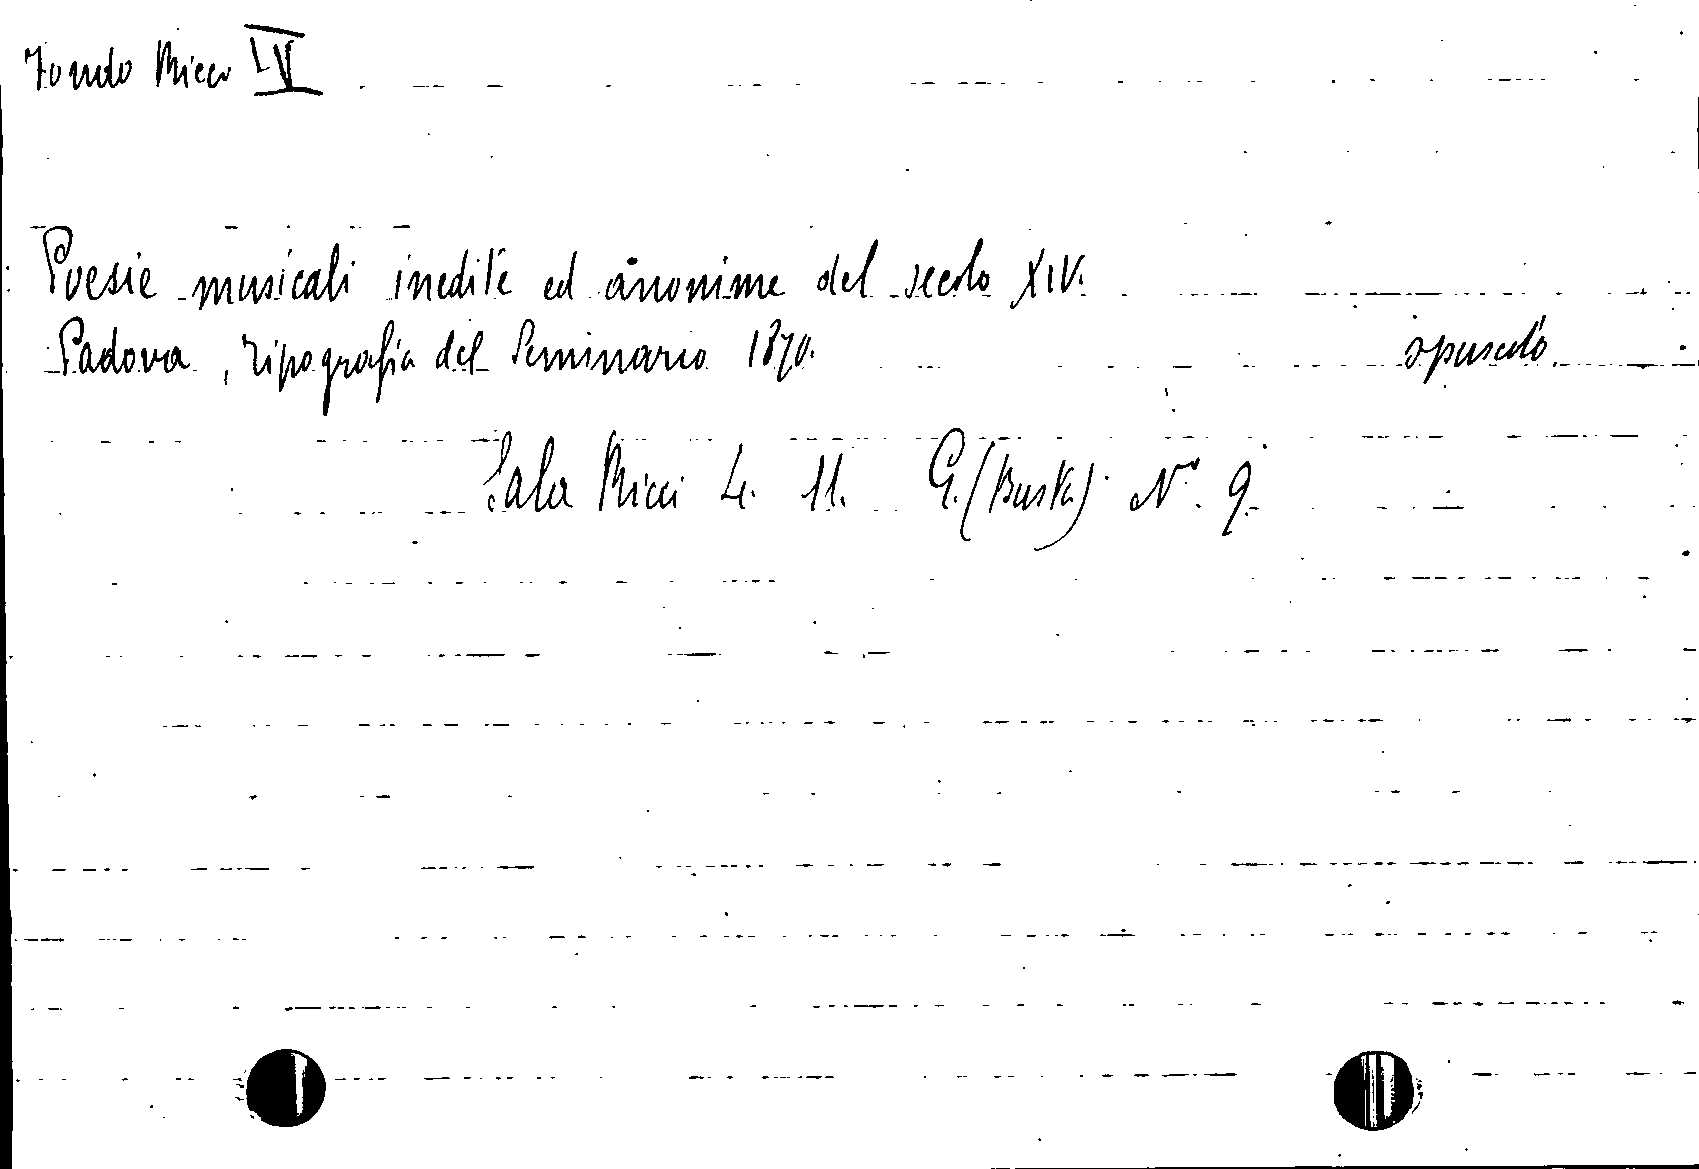 Fondo Ricci IV
Poesie musicali inedite ed anonime del secolo XIV.
Padova, Tipografia del Seminario 1870. opuscolo.
Sala Ricci L. 11. G. (Busta) N° 9.